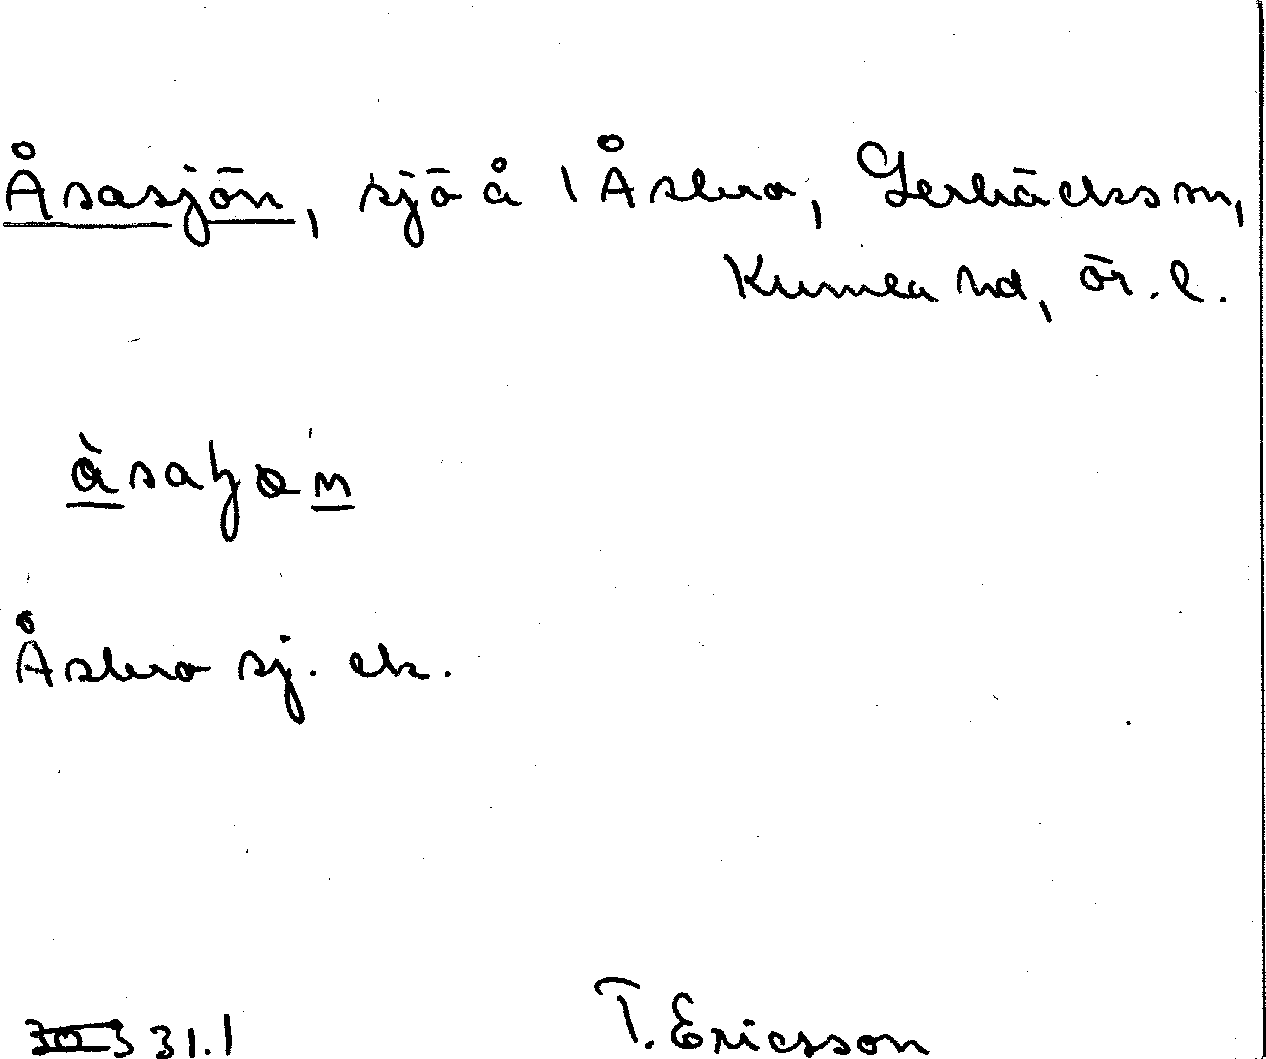 Åsasjön, sjö å 1 Åsbro, Lerbäcks sn,
Kumla hd, Ör. l.
Åsbro sj. ek.
31.1
T. Ericsson